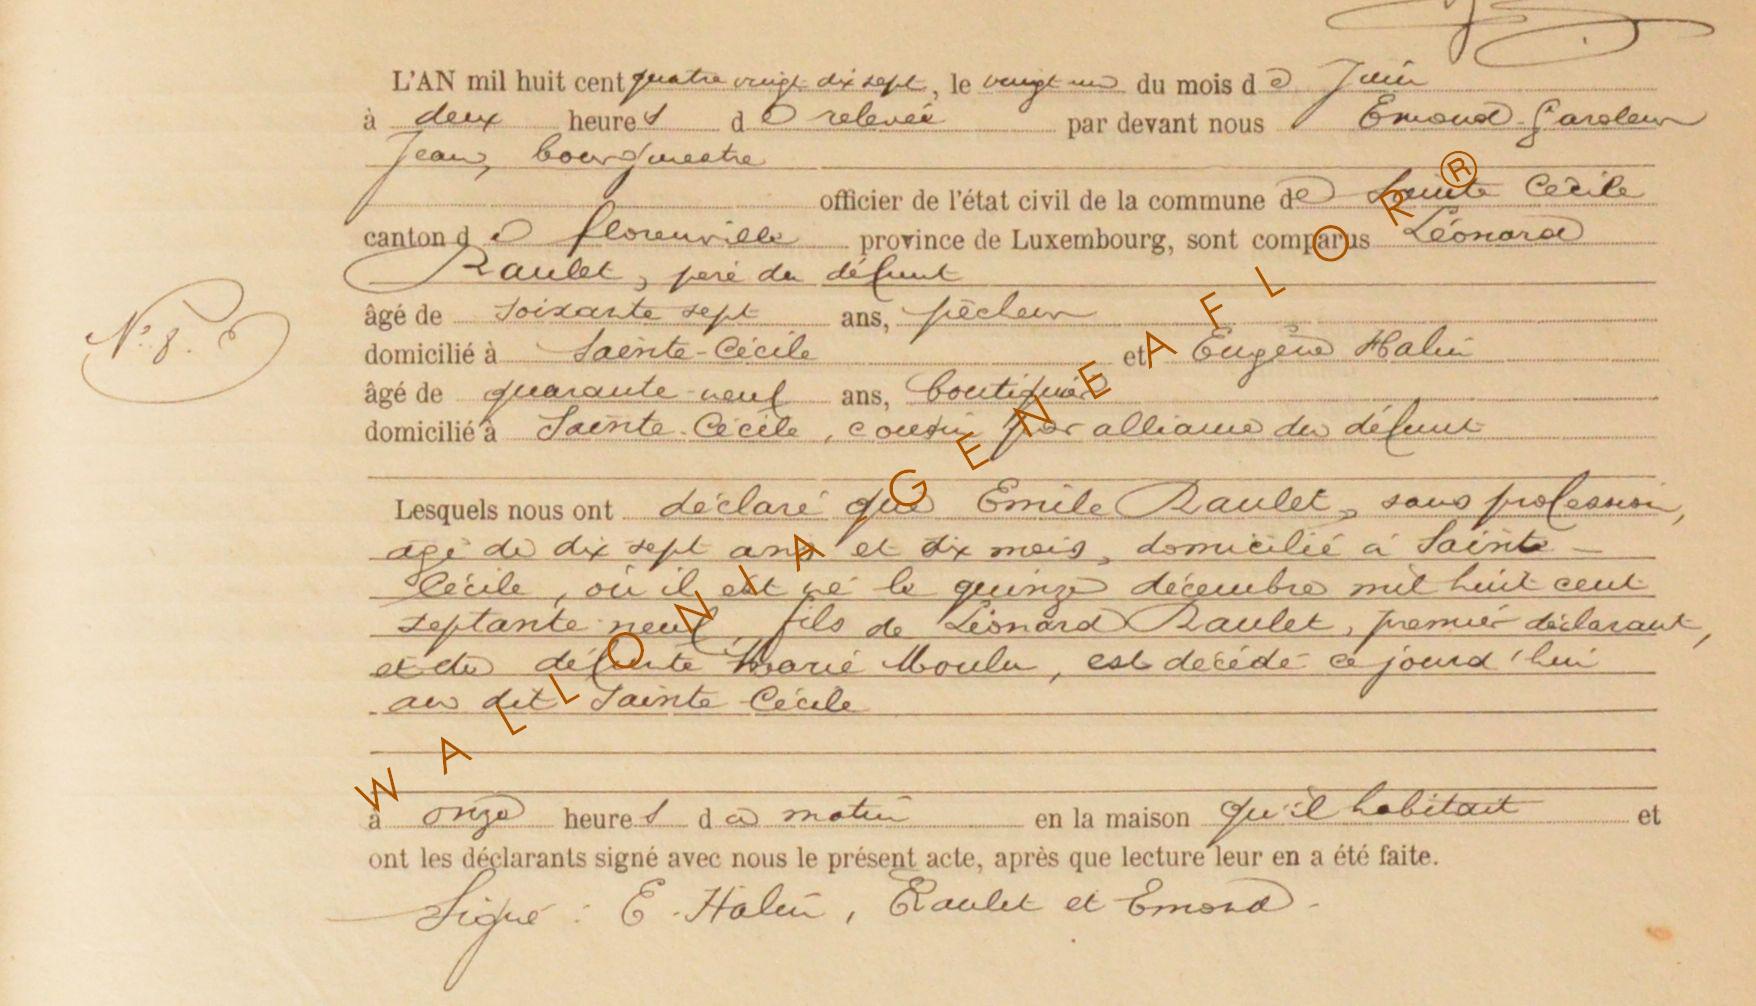 L'AN mil huit cent quatre vingt dix sept, le vingt un du mois de Juin
à deux heures de relevée par devant nous Emond
Jean, bourgmestre
officier de l'état civil de la commune de Sainte Cécile
canton de Florenville province de Luxembourg, sont comparus Léonard
Raulet, père du défunt
âgé de soixante sept ans, pêcheur
N° 8. D
domicilié à Sainte-Cécile et Eugène Halin
âgé de quarante-neuf ans, boutiquier
domicilié à Sainte-Cécile, cousin par alliance du défunt
Lesquels nous ont déclaré que Emile Raulet, sans profession,
agé de dix sept ans et dix mois, domicilié à Sainte-
Cécile, où il est né le quinze décembre mil huit cent
septante neuf, fils de Léonard Raulet, premier déclarant,
et de défunte Marie Moulu, est décédé ce jourd'hui
au dit Sainte-Cécile
à onze heures du matin en la maison qu'il habitait et
ont les déclarants signé avec nous le présent acte, après que lecture leur en a été faite.
Signé : E. Halin, Raulet et Emond.
WALLONIA GENEAFLOR®